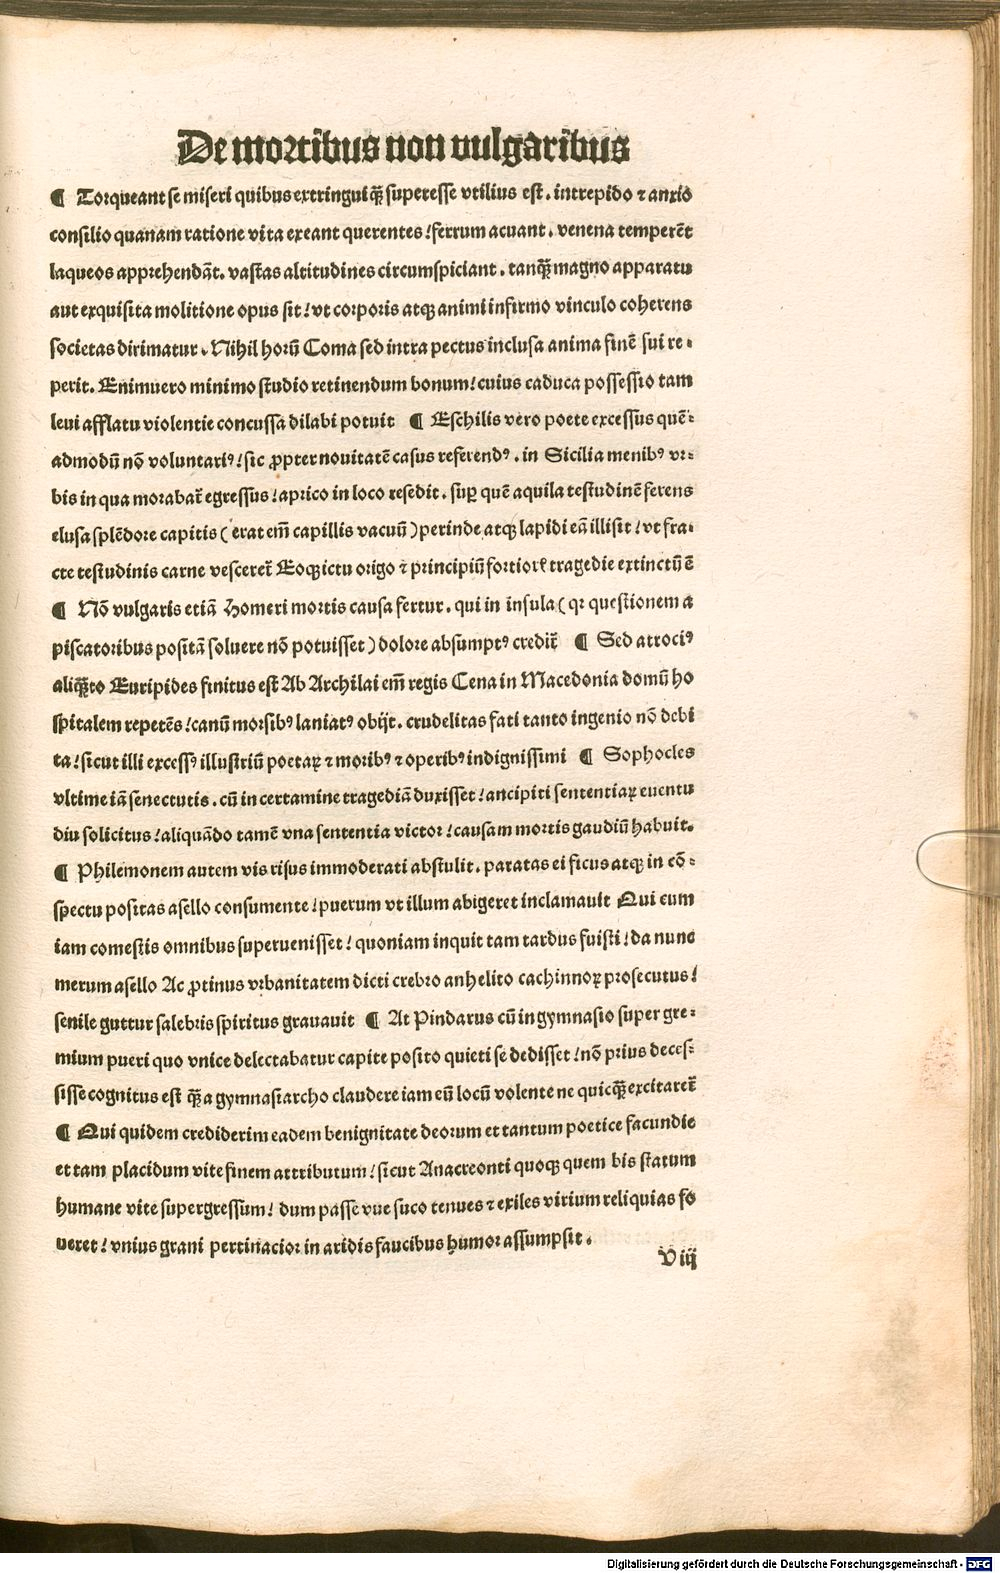 De mortibus non vulgaribus
¶ Torqueant se miseri quibus extringui q̃ superesse vtilius est. intrepido ⁊ anxio
consilio quanam ratione vita exeant querentes/ ferrum acuant. venena temperẽt
laqueos apprehendãt. vastas altitudines circumspiciant. tanq̃ magno apparatu
aut exquisita molitione opus sit/ vt corporis atqꝫ animi infirmo vinculo coherens
societas dirimatur. Nihil horũ Coma sed intra pectus inclusa anima finẽ sui re-
perit. Enimuero minimo studio retinendum bonum/ cuius caduca possessio tam
leui afflatu violentie concussa dilabi potuit ¶ Eschilis vero poete excessus quẽ-
admodũ nõ voluntariꝰ/ sic ꝓpter nouitatẽ casus referendꝰ. in Sicilia menibꝰ vr-
bis in qua morabat̃ egressus/ aprico in loco resedit. suꝑ quẽ aquila testudinẽ ferens
elusa splẽdore capitis (erat em̃ capillis vacuũ) perinde atqꝫ lapidi eã illisit/ vt fra-
cte testudinis carne vesceret̃ Eoqꝫ ictu origo ⁊ principiũ fortioris tragedie extinctũ ẽ
¶ Nõ vulgaris etiã Homeri mortis causa fertur. qui in insula (qꝛ questionem a
piscatoribus positã soluere nõ potuisset) dolore absumptꝰ credit̃ ¶ Sed atrociꝰ
aliq̃to Euripides finitus est Ab Archilai em̃ regis Cena in Macedonia domũ ho
spitalem repetẽs/ canũ morsibꝰ laniatꝰ obijt. crudelitas fati tanto ingenio nõ debi
ta/ sicut illi excessꝰ illustriũ poetaꝝ ⁊ moribꝰ ⁊ operibꝰ indignissimi ¶ Sophocles
vltime iã senectutis. cũ in certamine tragediã duxisset/ ancipiti sententiaꝝ euentu
diu solicitus/ aliquãdo tamẽ vna sententia victor/ causam mortis gaudiũ habuit.
¶ Philemonem autem vis risus immoderati abstulit. paratas ei ficus atqꝫ in cõ-
spectu positas asello consumente/ puerum vt illum abigeret inclamauit Qui cum
iam comestis omnibus superuenisset/ quoniam inquit tam tardus fuisti/ da nunc
merum asello Ac ꝓtinus vrbanitatem dicti crebro anhelito cachinnoꝝ prosecutus/
senile guttur salebris spiritus grauauit ¶ At Pindarus cũ in gymnasio super gre-
mium pueri quo vnice delectabatur capite posito quieti se dedisset/ nõ prius deces-
sisse cognitus est q̃ a gymnastarcho claudere iam eũ locũ volente ne quicq̃ excitaret̃
¶ Qui quidem crediderim eadem benignitate deorum et tantum poetice facundie
et tam placidum vite finem attributum/ sicut Anacreonti quoqꝫ quem bis statum
humane vite supergressum/ dum passe vue suco tenues ⁊ exiles virium reliquias fo
ueret/ vnius grani pertinacior in aridis faucibus humor assumpsit.
V iij
Digitalisierung gefördert durch die Deutsche Forschungsgemeinschaft - DFG